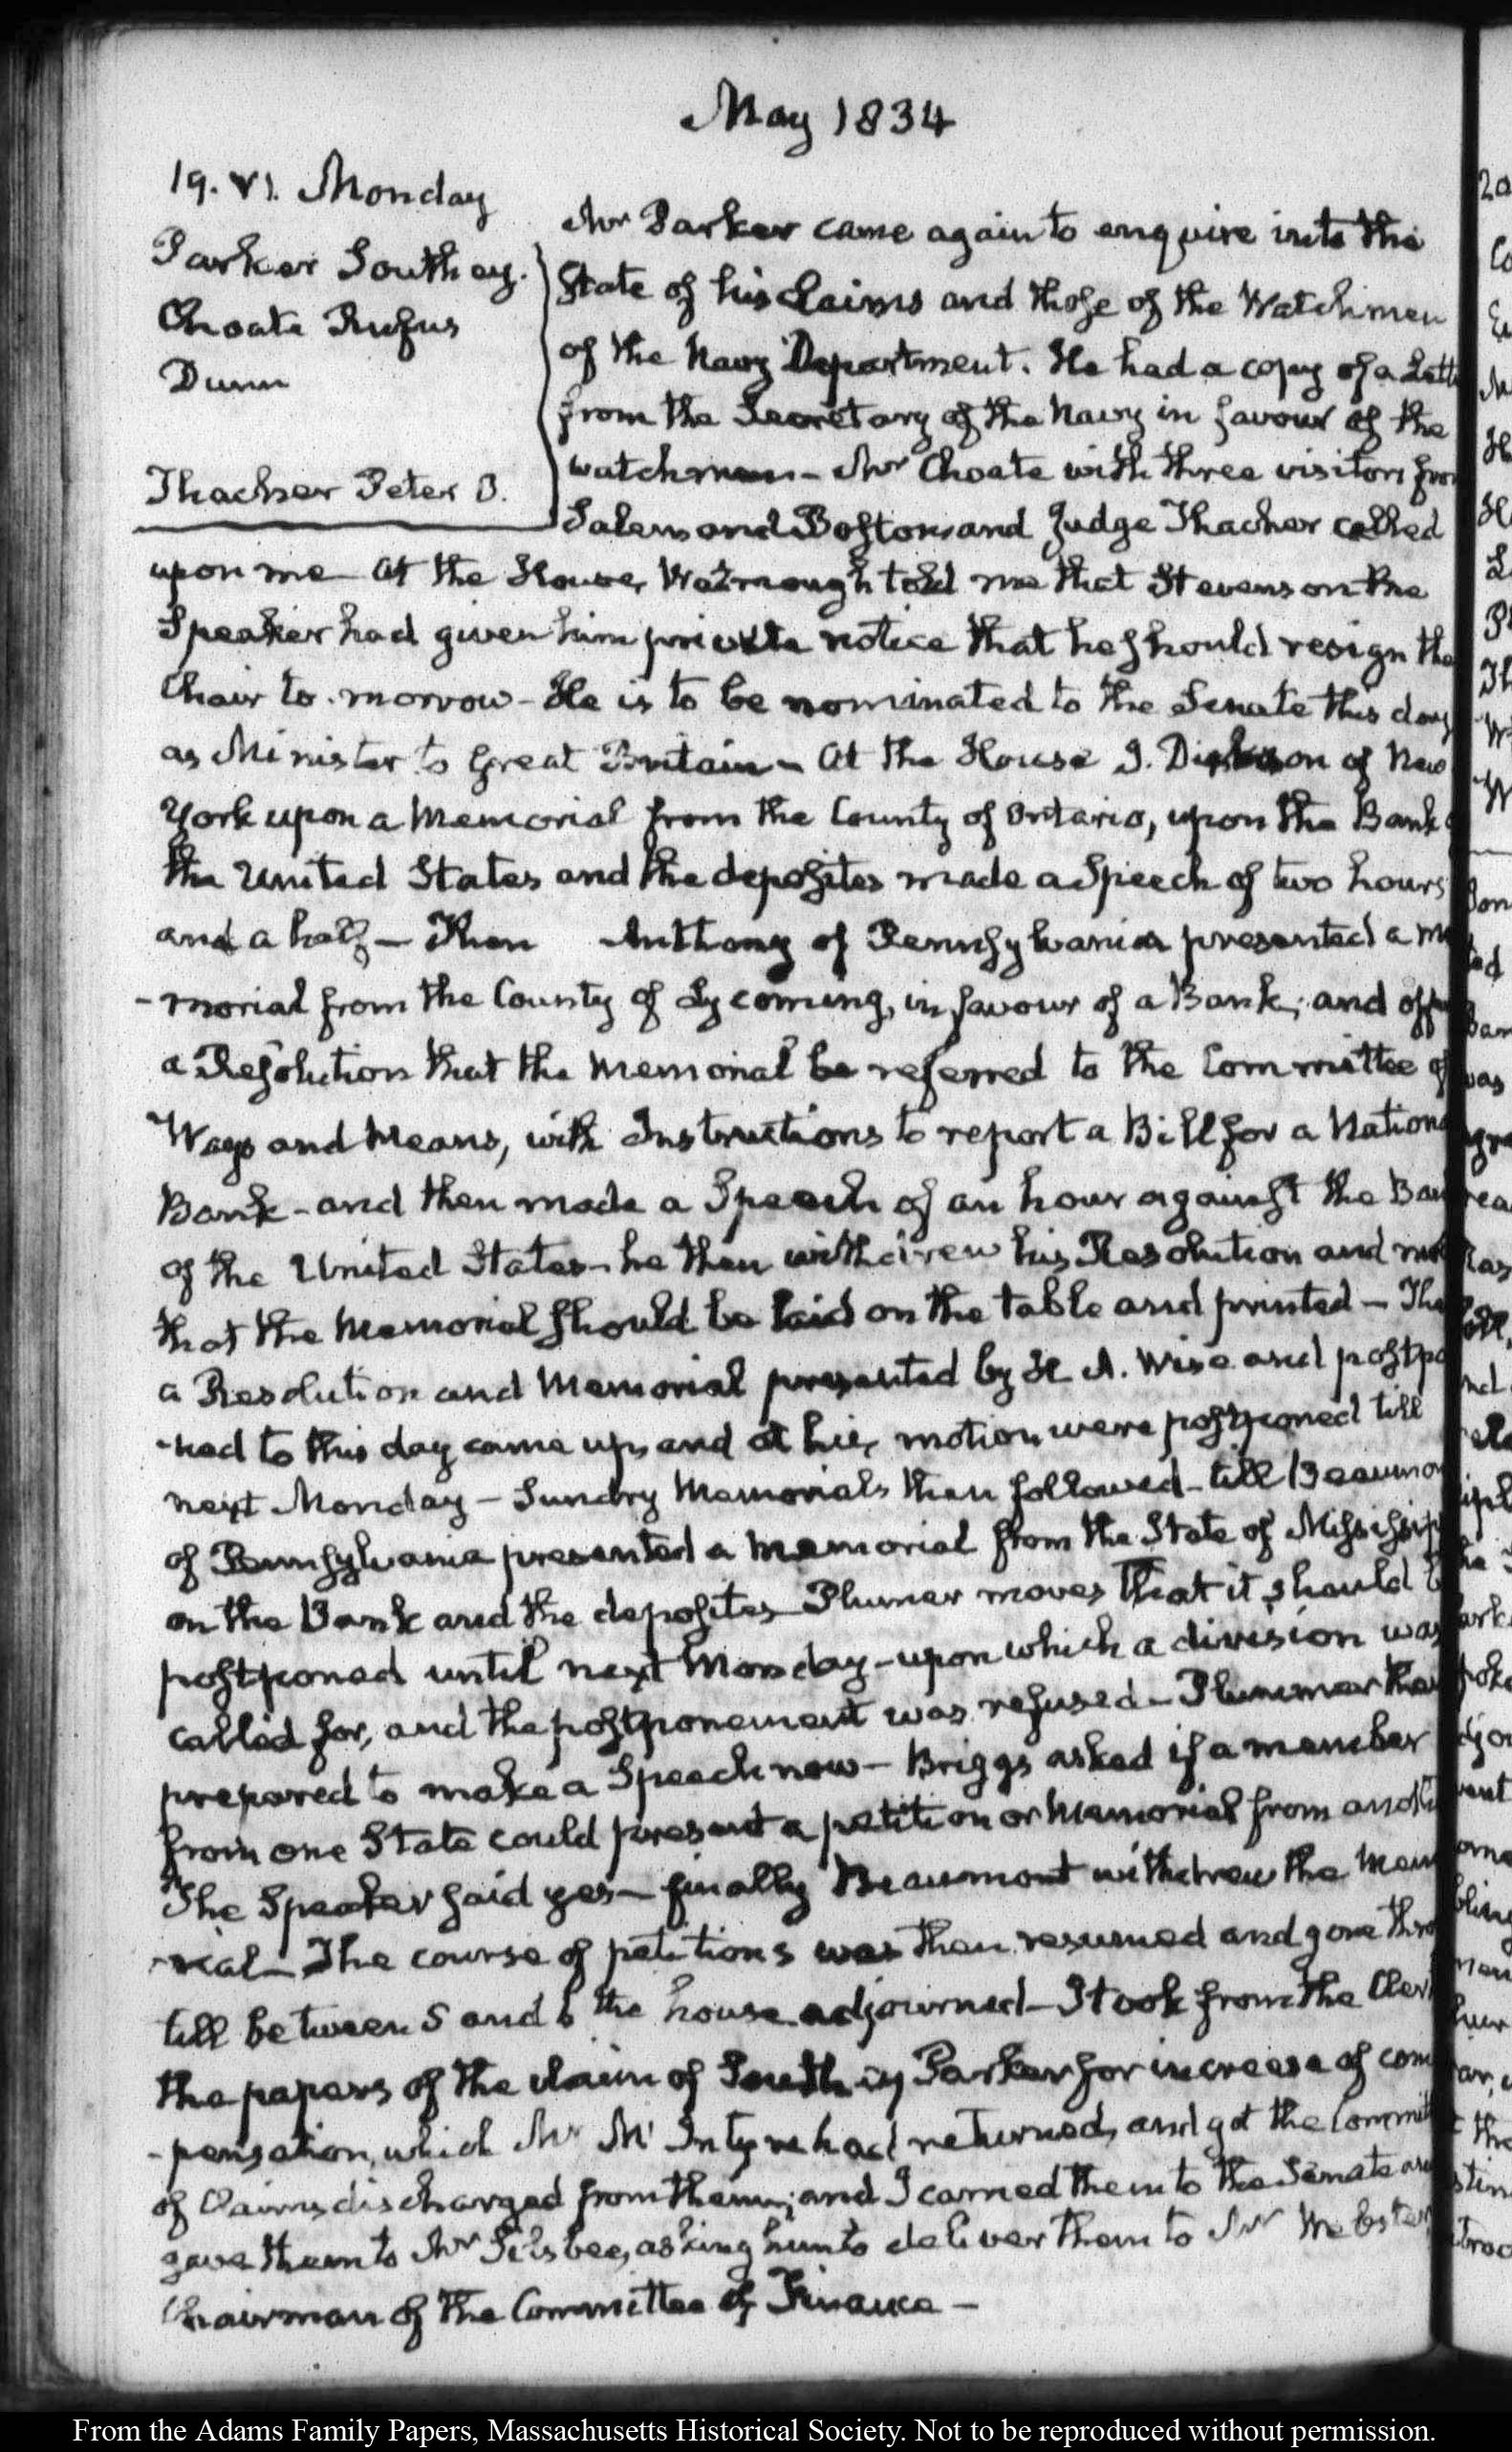 May 1834
19. VI. Monday
Parker Southey.
Choate Rufus
Dunn
Thacher Peter O.
Mr Parker came again to enquire into the
State of his Claims and those of the Watchmen
of the Navy Department. He had a copy of a Lett
from the Secretary of the Navy in favour of the
watchmen - Mr Choate with three visitors fro
Salem and Boston and Judge Thacher called
upon me - At the House, Watmough told me that Stevenson the
Speaker had given him private notice that he should resign the
Chair to-morrow - He is to be nominated to the Senate this day
as Minister to Great Britain - At the House J. Dickson of New
York upon a Memorial from the County of Ontario, upon the Bank
the United States and the deposites made a Speech of two hours
and a half - Then Anthony of Pennsylvania presented a me
-morial from the County of Lycoming, in favour of a Bank; and off
a Resolution that the Memorial be referred to the Committee of
Ways and Means, with Instructions to report a Bill for a Nation
Bank - and then made a Speech of an hour against the Ban
of the United States - he then withdrew his Resolution and mo
that the Memorial should be laid on the table and printed - The
a Resolution and Memorial presented by H. A. Wise and postpo
-ned to this day came up, and at his motion were postponed till
next Monday - Sundry Memorials then followed - till Beaumon
of Pennsylvania presented a Memorial from the State of Mississip
on the Bank and the deposites - Plumer moves that it should b
postponed until next Monday - upon which a division was
called for, and the postponement was refused - Plummer then
prepared to make a Speech now - Briggs asked if a member
from one State could present a petition or Memorial from anoth
The Speaker said yes - finally Beaumont withdrew the Mem
-rial - The course of petitions was then resumed and gone thro
till between 5 and 6 the house adjourned - I took from the Cler
the papers of the claim of Southey Parker for increase of com
-pensation, which Mr McIntyre had returned, and got the Committ
of Claims discharged from them; and I carried them to the Senate and
gave them to Mr Silsbee, asking him to deliver them to Mr Webster
Chairman of the Committee of Finance -
From the Adams Family Papers, Massachusetts Historical Society. Not to be reproduced without permission.